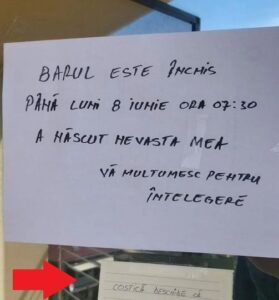 BARUL ESTE ÎNCHIS
PÂNĂ LUNI 8 IUNIE ORA 07:30
A NĂSCUT NEVASTA MEA
VĂ MULTUMESC PENTRU
ÎNTELEGERE
COSTICĂ DESCHIDE